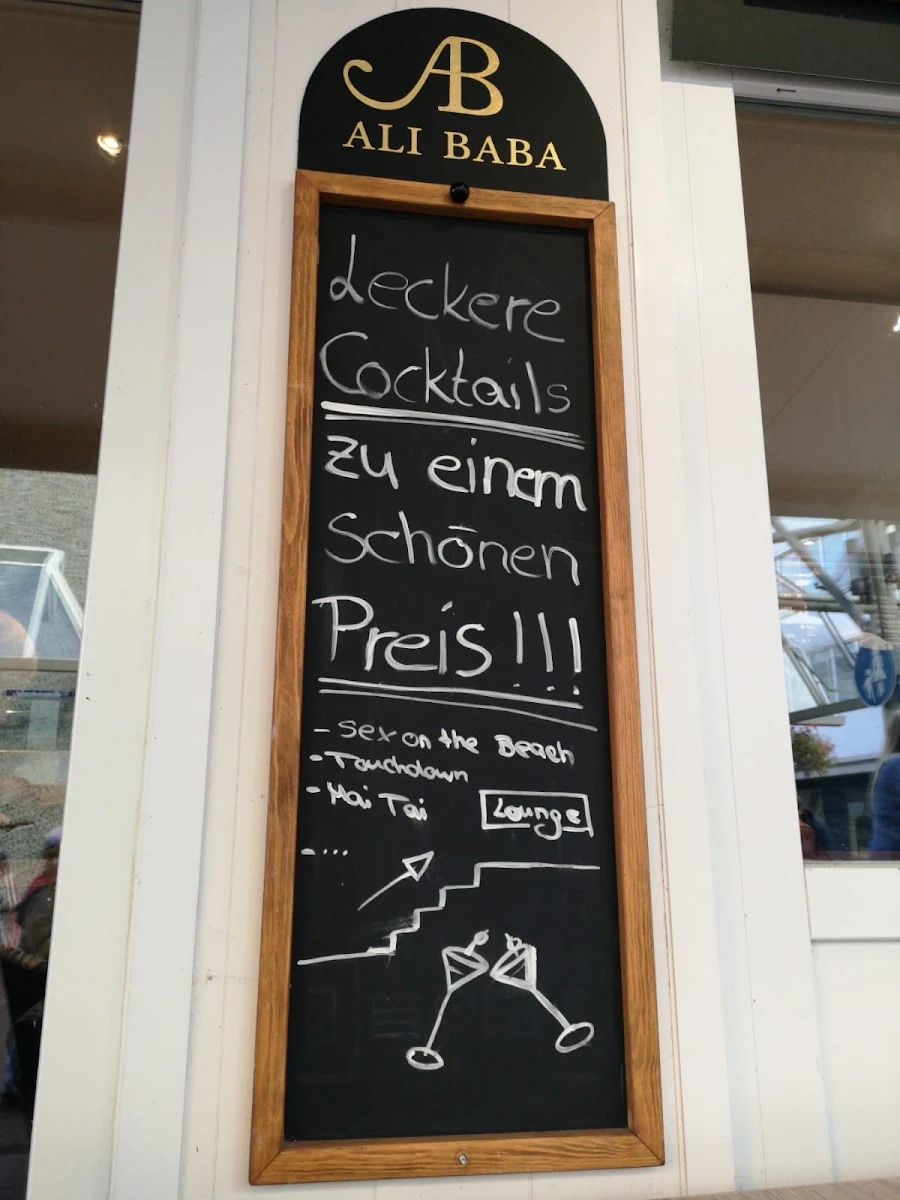 AB
ALI BABA
Leckere
Cocktails
zu einem
Schönen
Preis!!!
- Sex on the Beach
- Touchdown
- Mai Tai
Lounge
- ...